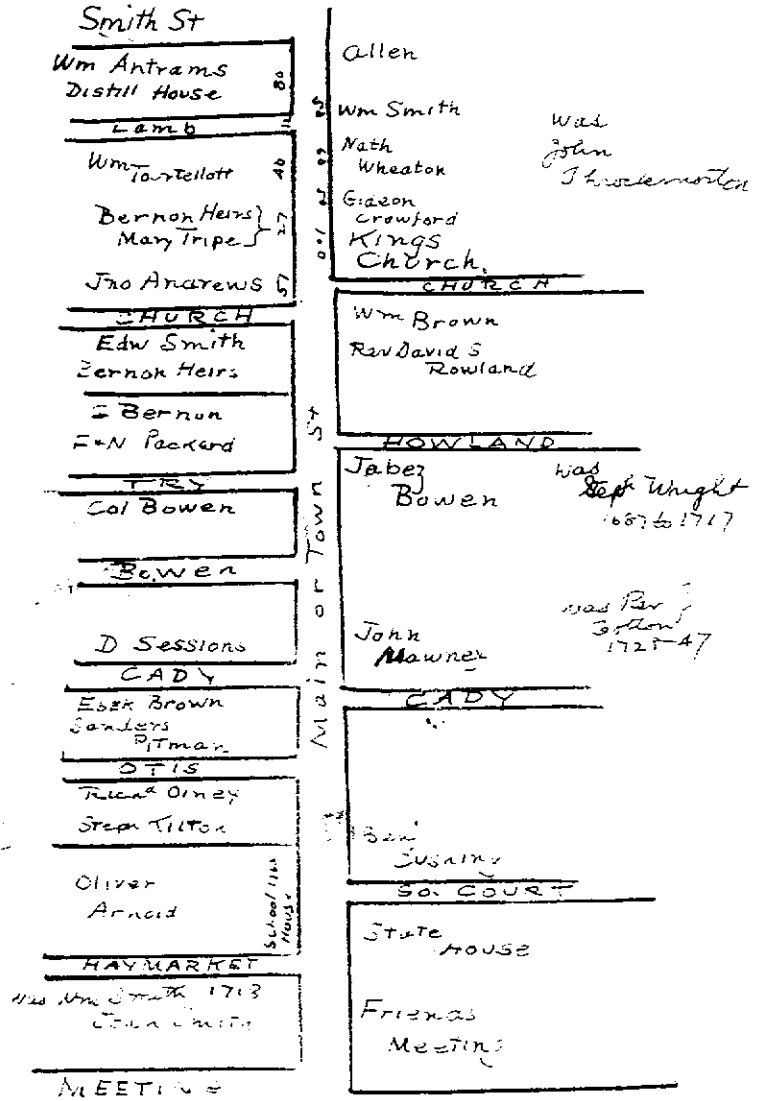 Smith St
Wm Antrams
Distill House
80
Lamb
12
Wm Tourtellott
40
Bernon Heirs
Mary Tripe
27
Jno Andrews
57
CHURCH
Edw Smith
Bernon Heirs
Bernon
F+N Packard
TRY
Col Bowen
Bowen
D Sessions
CADY
Ebek Brown
Sanders
Pitman
OTIS
Olney
Steph Tilton
Oliver
Arnold
School
House
HAYMARKET
was Wm Smith 1713
John Smith
MEETING
Main or Town St
Allen
Wm Smith
Nath
Wheaton
was
John
Throckmorton
Gideon
Crawford
Kings
Church.
CHURCH
Wm Brown
Rev David S
Rowland
HOWLAND
Jabez
Bowen
was
Steph Wright
1687 to 1717
John
Mawney
was Rev
1728-47
CADY
Benj
SO. COURT
State
House
Friends
Meeting